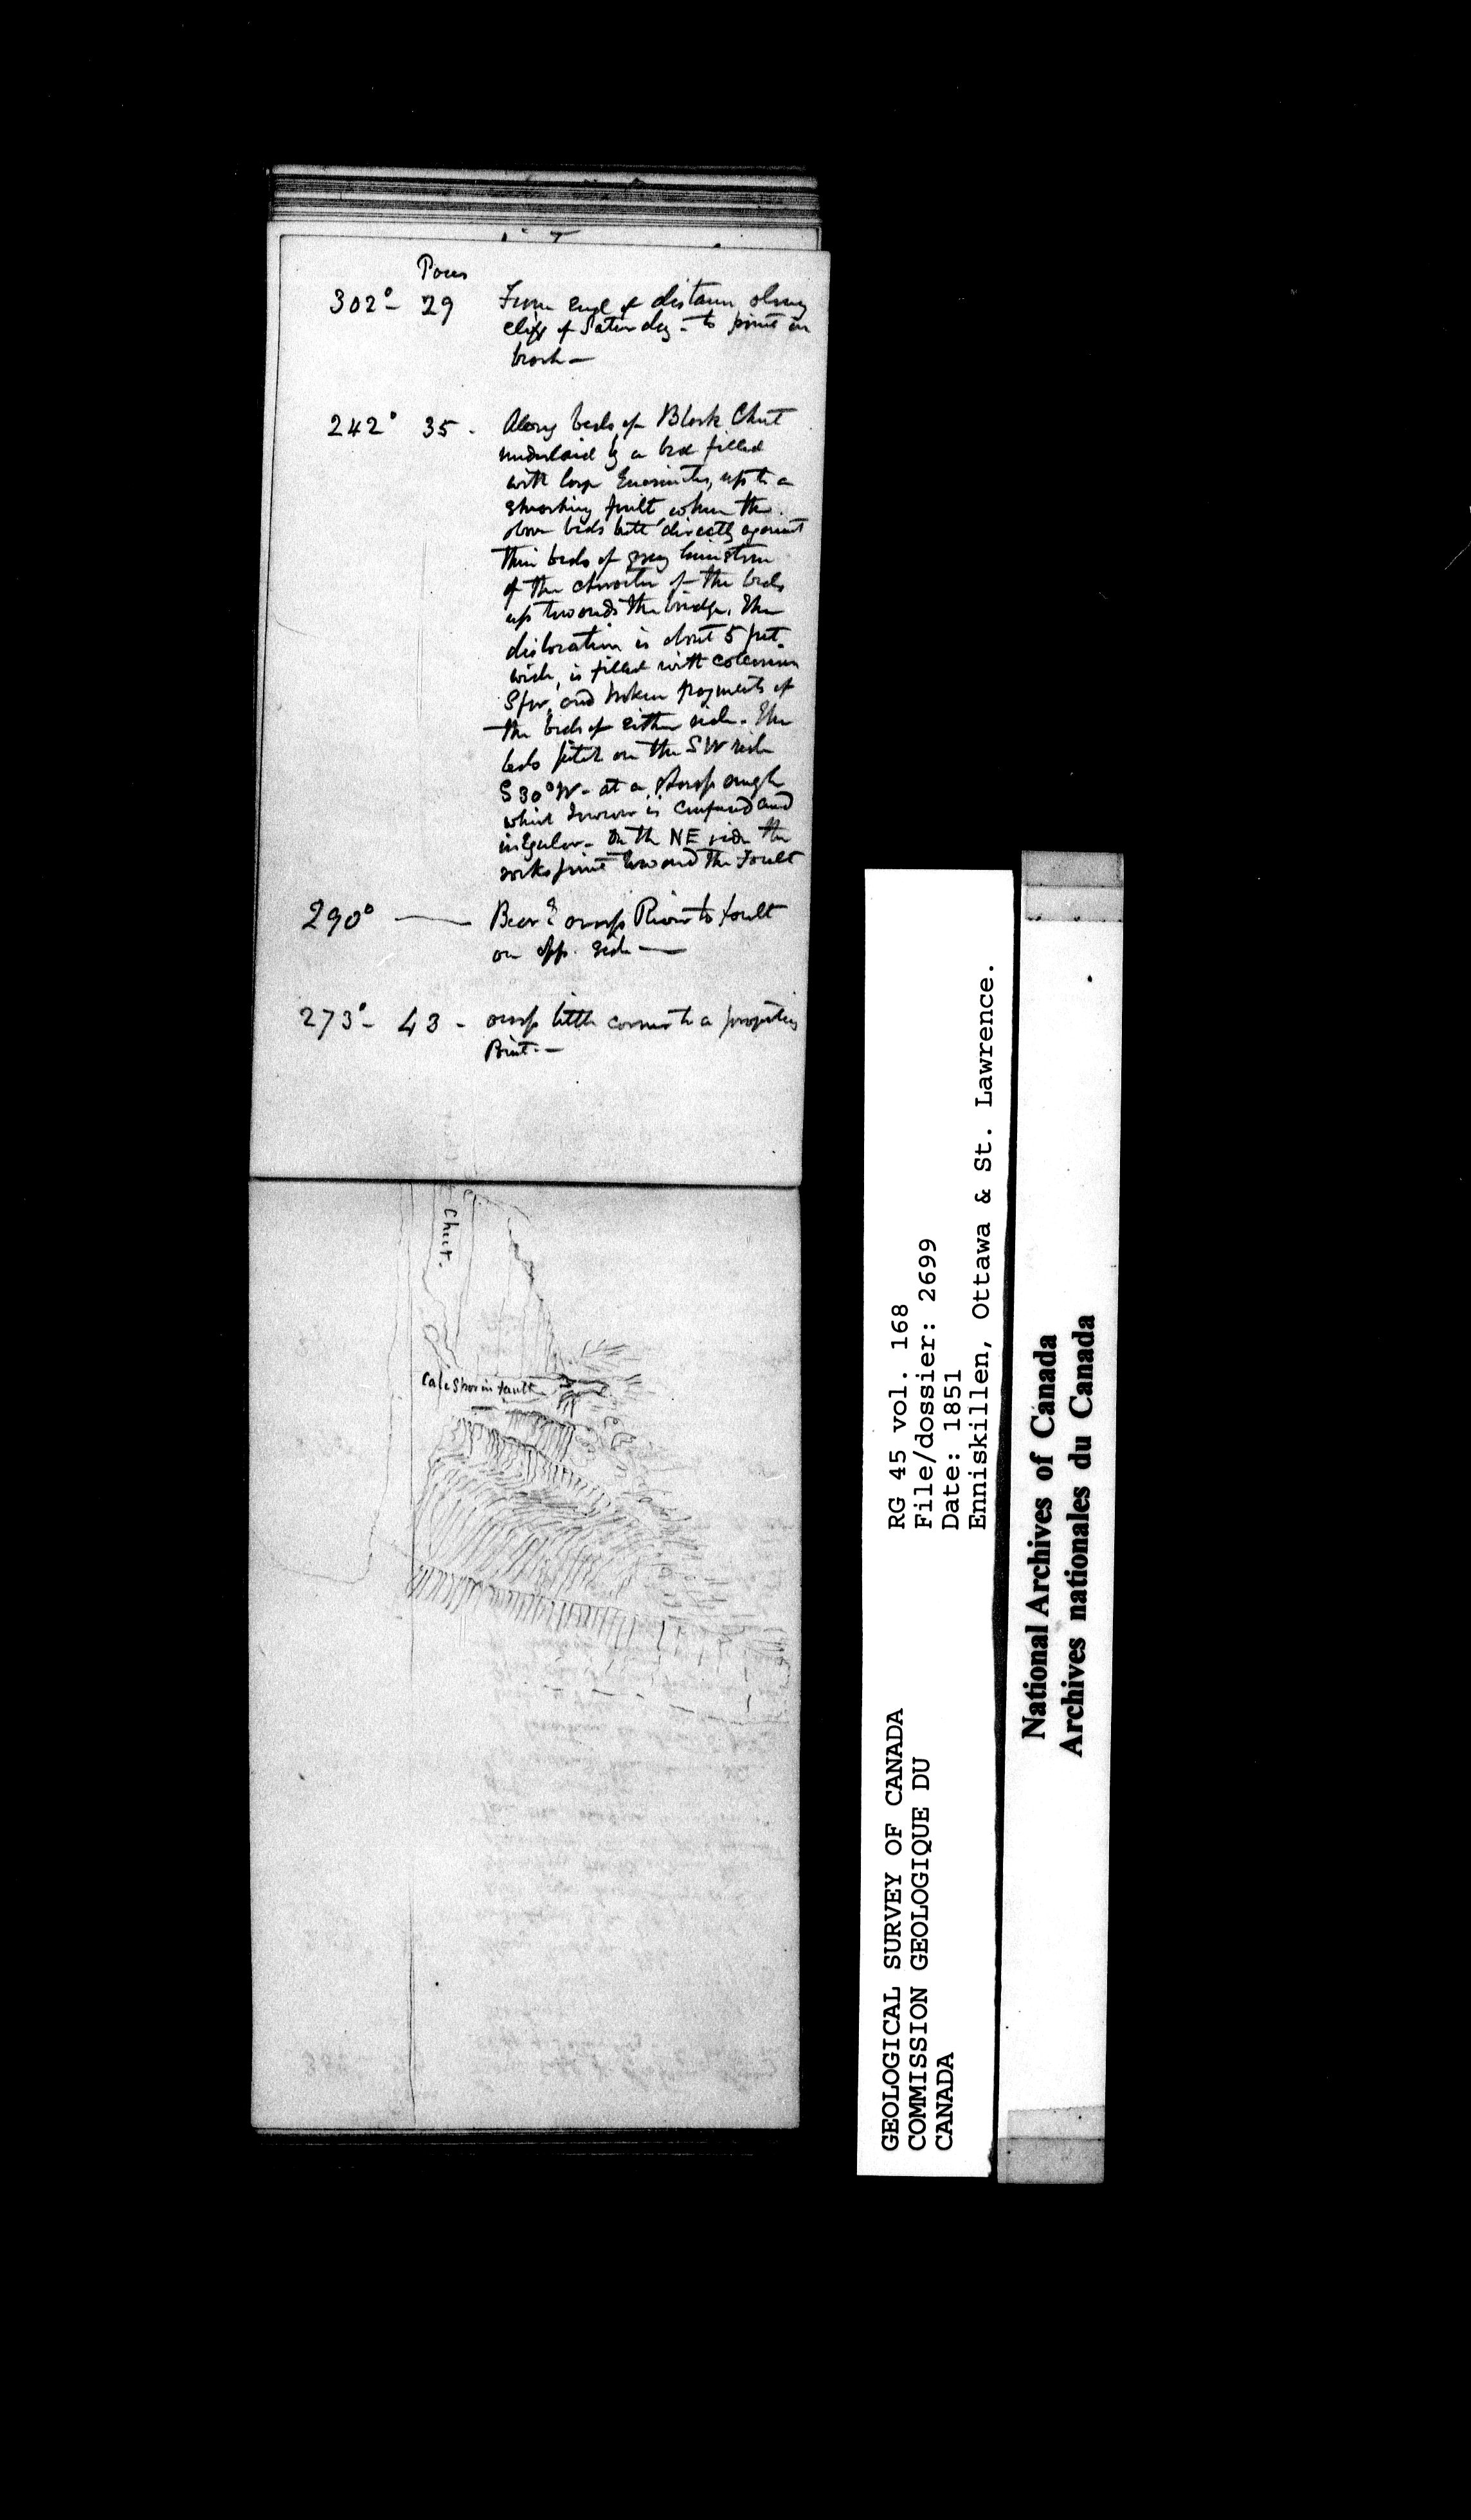 Paces
302° - 29 From end of distance along
cliff of Saturday - to point in
brook —
242° 35 - Along beds of Black Chert
underlaid by a bed filled
with large Encrinites, up to a
fault where the
above beds butt directly against
thin beds of grey limestone
of the character of the beds
up towards the bridge. The
dislocation is about 5 feet
wide, is filled with calcareous
Spar, and broken fragments of
the beds of either side. The
beds pitch on the SW side
S 30° W - at a sharp angle
which however is confused and
irregular - On the NE side the
rocks point toward the Fault
290° — Bear'g across River to fault
on opp. side —
273° - 43 - across little corner to a projecting
Point. —
Chert.
Calc Spar in fault
RG 45 vol. 168
File/dossier: 2699
Date: 1851
Enniskillen, Ottawa & St. Lawrence.
GEOLOGICAL SURVEY OF CANADA
COMMISSION GEOLOGIQUE DU
CANADA
National Archives of Canada
Archives nationales du Canada